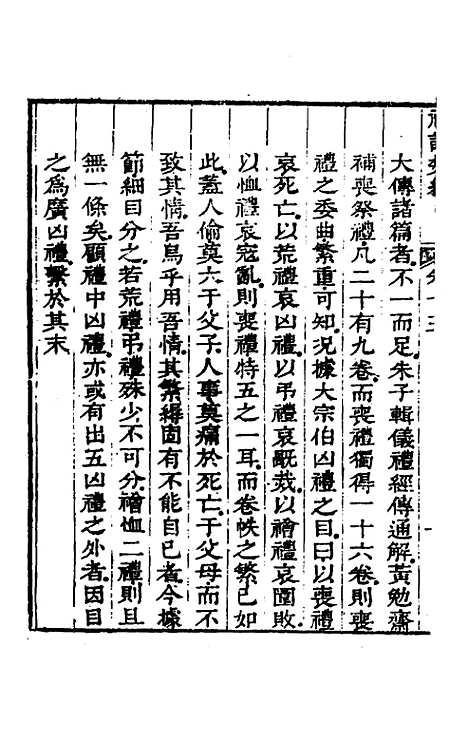 大傳諸篇者。不一而足。朱子輯儀禮經傳通解。黃勉齋
補喪祭禮。凡二十有九卷。而喪禮獨得一十六卷。則喪
禮之委曲繁重可知。況據大宗伯凶禮之目。曰以喪禮
哀死亡。以荒禮哀凶札。以弔禮哀禍烖。以禬禮哀圍敗。
以恤禮哀寇亂。則喪禮特五之一耳。而卷帙之繁已如
此。蓋人倫莫大于父子。人事莫痛於死亡。于父母而不
致其情。吾烏乎用吾情。其繁縟固有不能自已者。今據
節細目分之。若荒禮弔禮殊少。不可分。禬恤二禮。則且
無一條矣。顧禮中凶禮。亦或有出五凶禮之外者。因目
之為廣凶禮。繫於其末